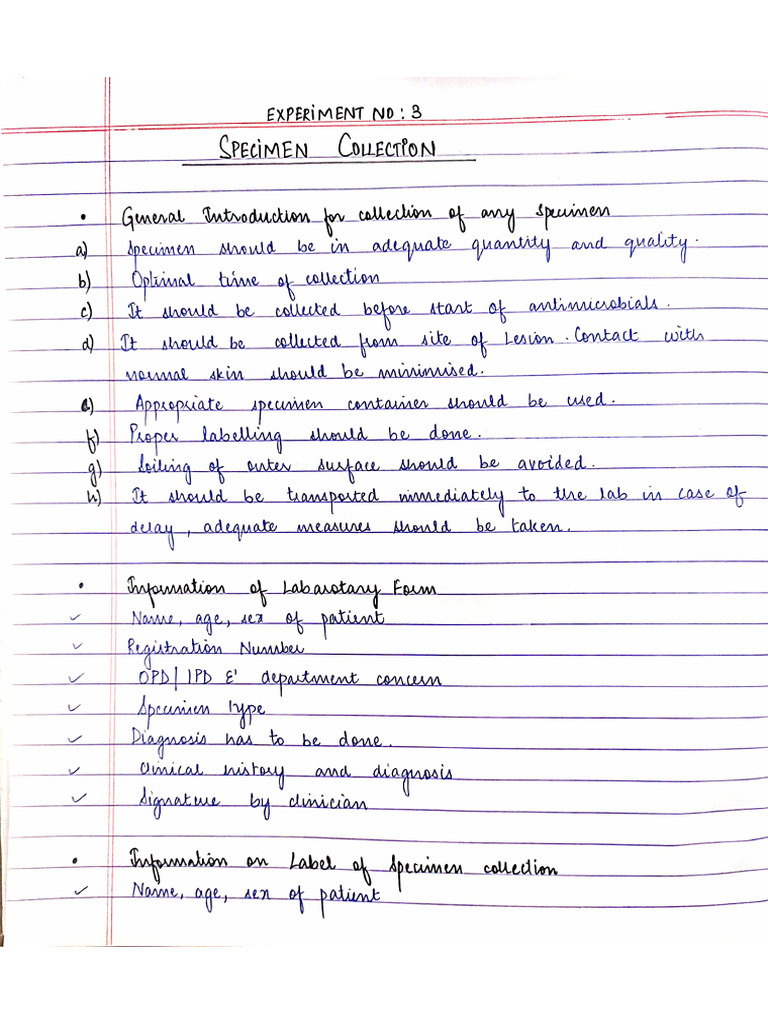 EXPERIMENT NO : 3
SPECIMEN COLLECTION
• General Introduction for collection of any specimen
a) Specimen should be in adequate quantity and quality.
b) Optimal time of collection
c) It should be collected before start of antimicrobials.
d) It should be collected from site of Lesion. Contact with
normal skin should be minimised.
e) Appropriate specimen container should be used.
f) Proper labelling should be done.
g) Soiling of outer surface should be avoided.
h) It should be transported immediately to the lab in case of
delay, adequate measures should be taken.
• Information of Labarotary Form
✓ Name, age, sex of patient
✓ Registration Number
✓ OPD/IPD &' department concern
✓ Specimen type
✓ Diagnosis has to be done.
✓ Clinical history and diagnosis
✓ Signature by clinician
• Information on Label of specimen collection
✓ Name, age, sex of patient